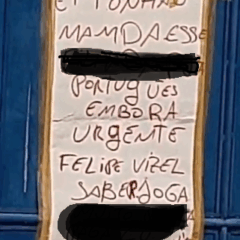 MAMDA ESSE
PORTUGUES
EMBORA
URGENTE
FELIPE VIZEL
SABER JOGA